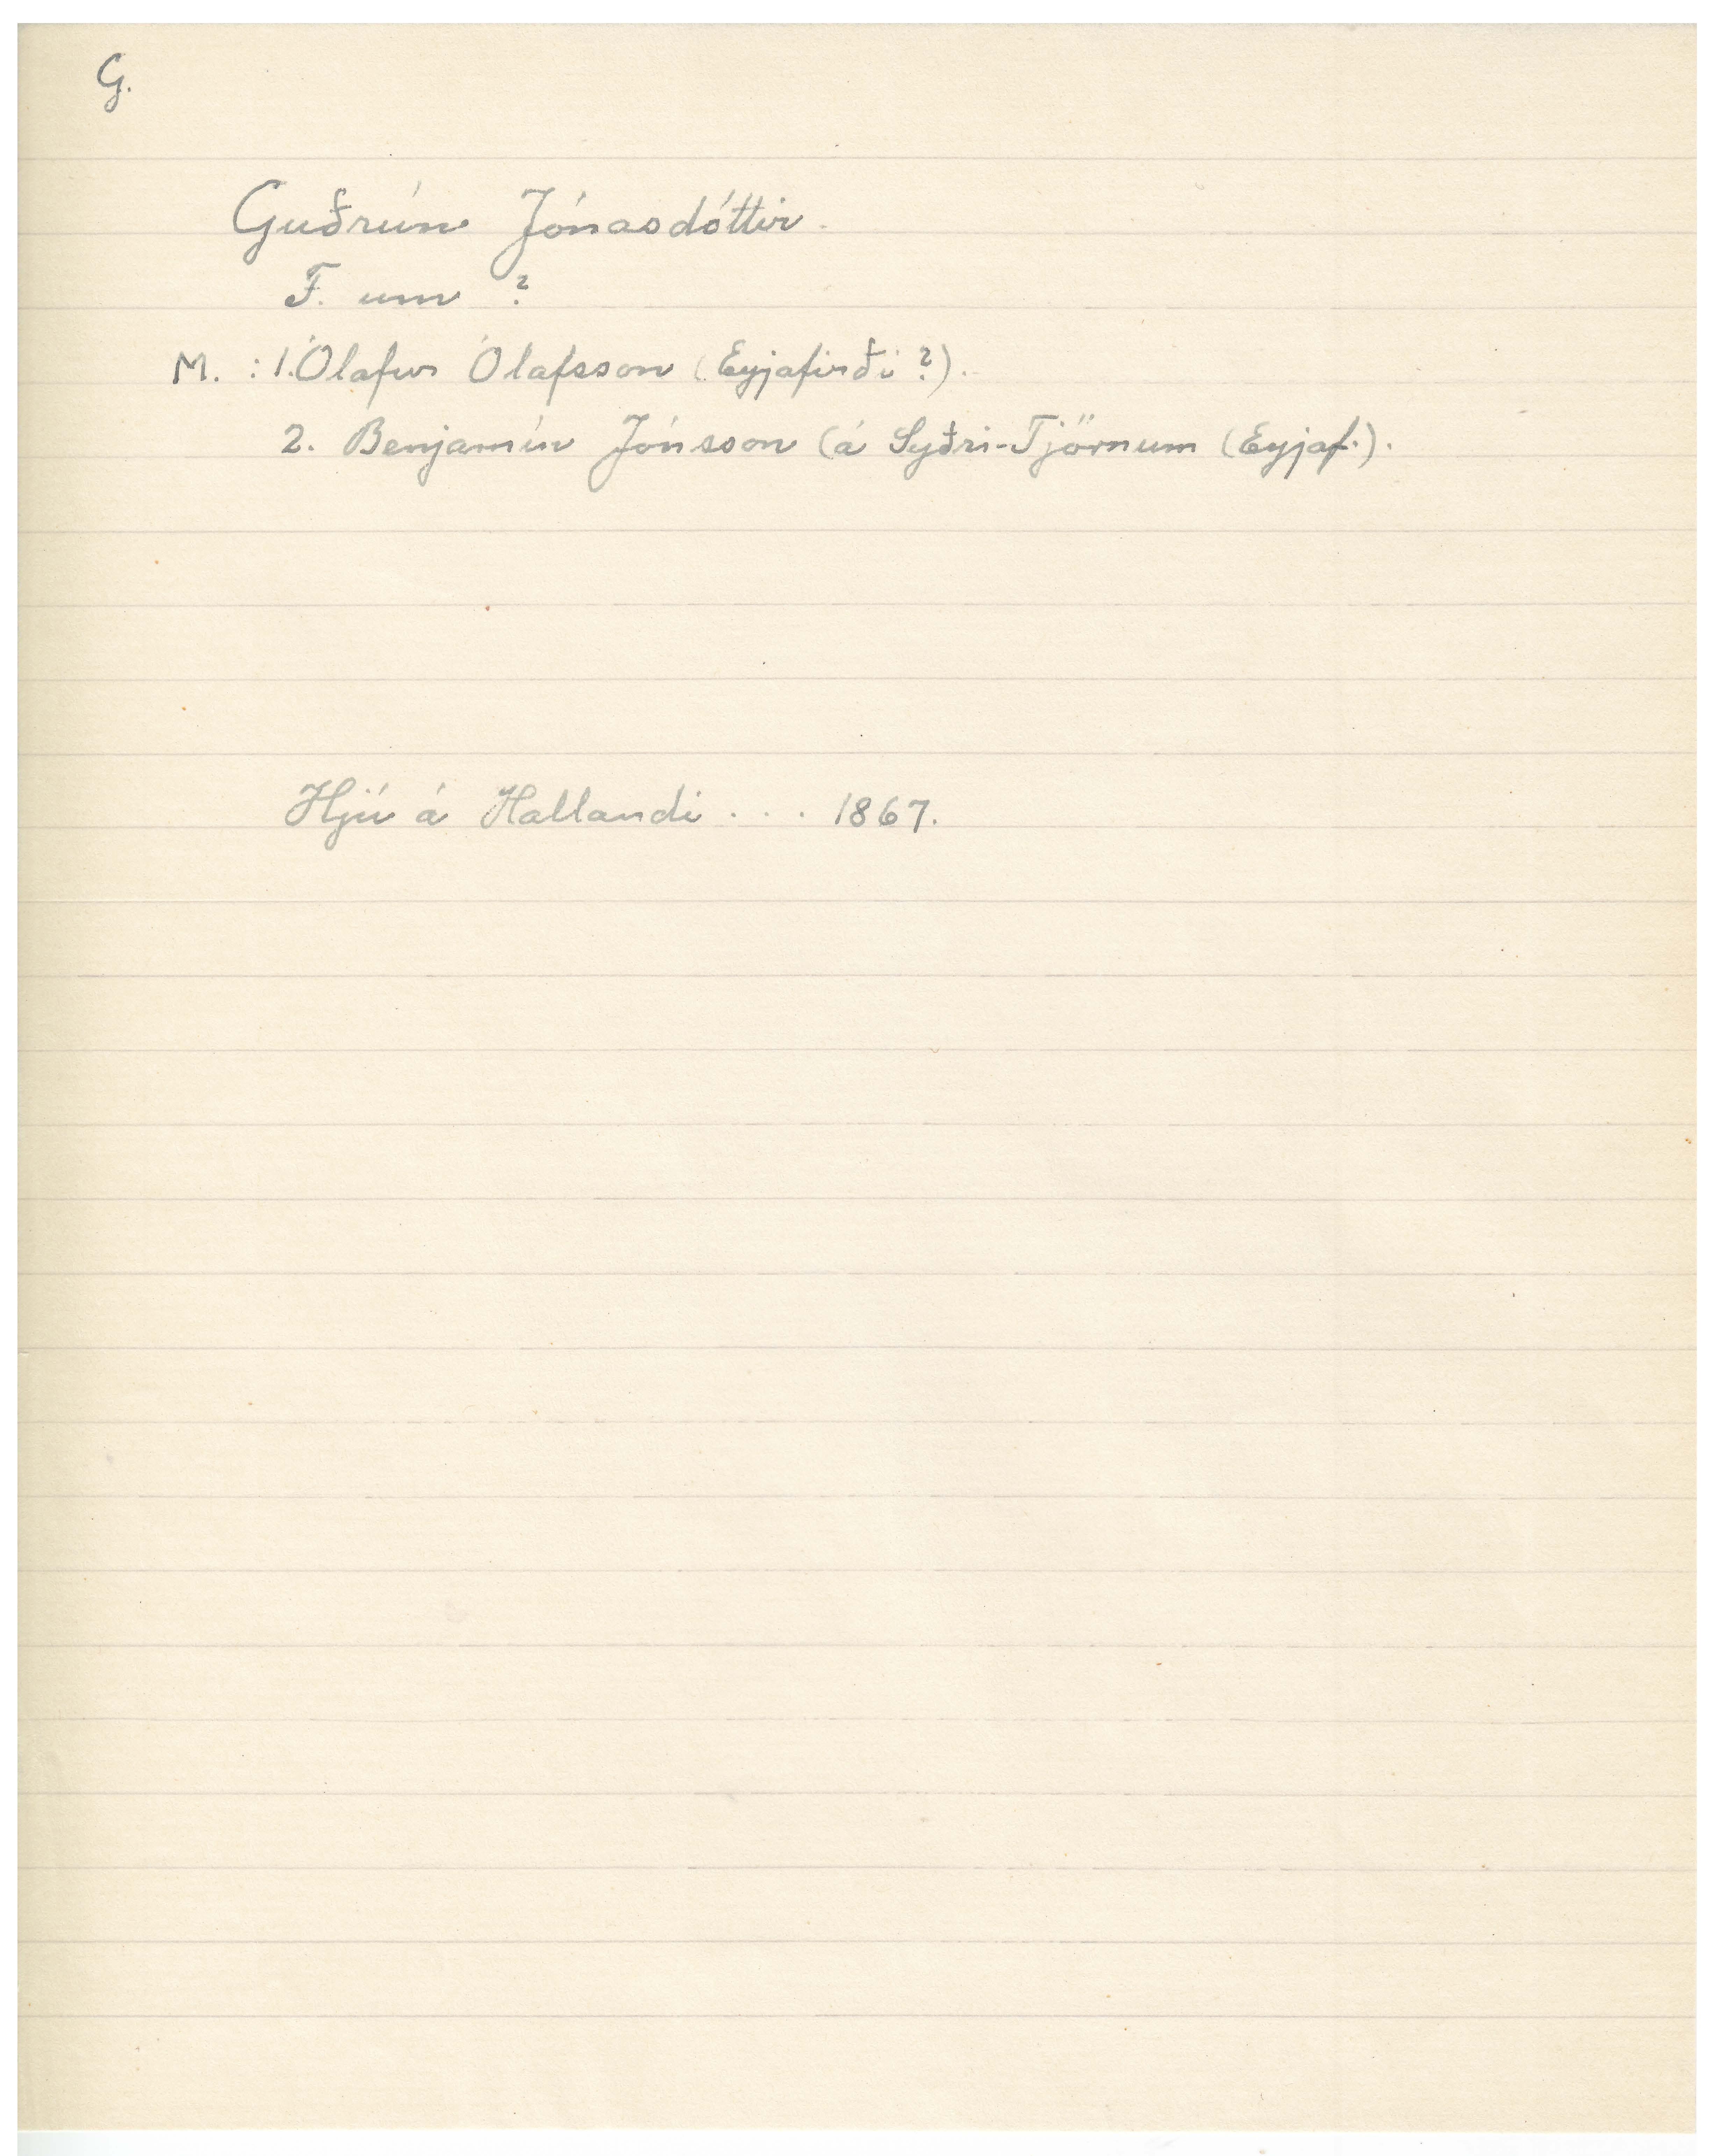 G.
Guðrún Jónasdóttir.
F. um ?
M. : 1. Ólafur Ólafsson (Eyjafirði ?).
2. Benjamín Jónsson (á Syðri-Tjörnum (Eyjaf.).
Hjú á Hallandi . . . 1867.